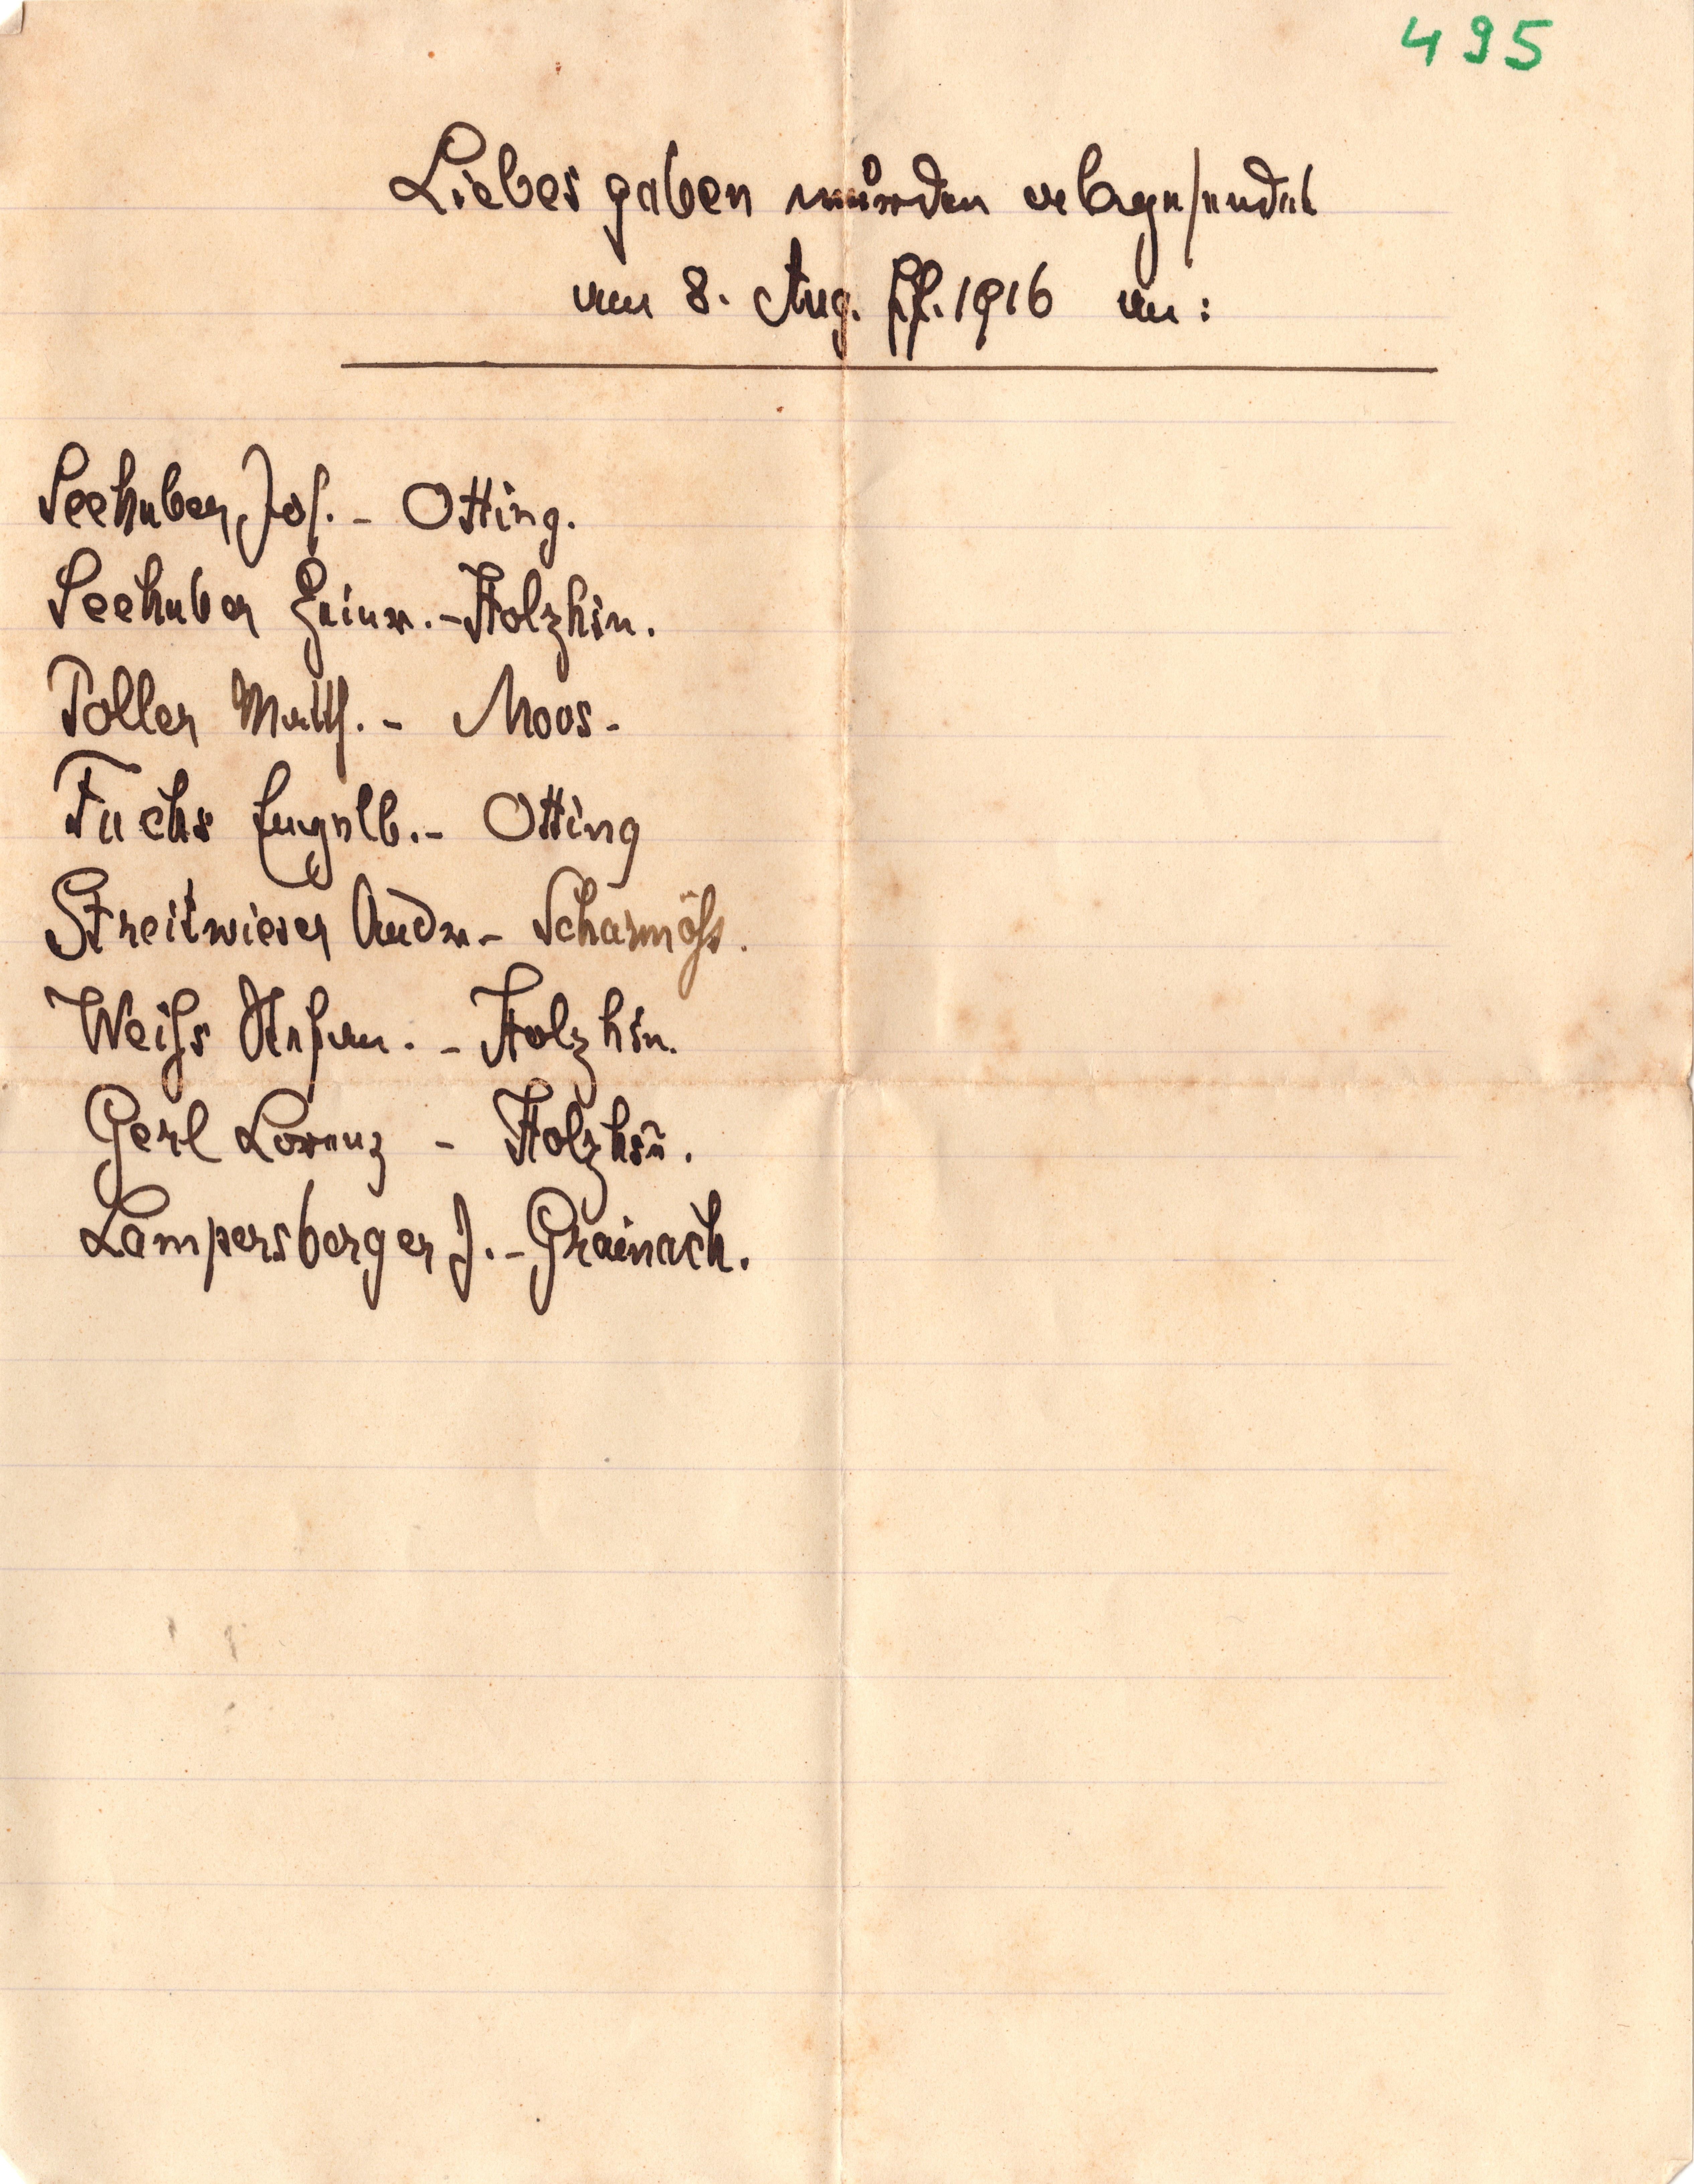 495
Liebesgaben wurden abgesendet
am 8. Aug. 1916 an:
Seehuber Jos. - Otting.
Seehuber - Holzhsn.
Poller Matth. - Moos -
Fuchs Engelb. - Otting
Streitwieser Andr - Scharmöhs.
Weihs Stefan. - Holzhsn.
Gerl Lorenz - Holzhsn̄.
Lampersberger J. - Grainach.